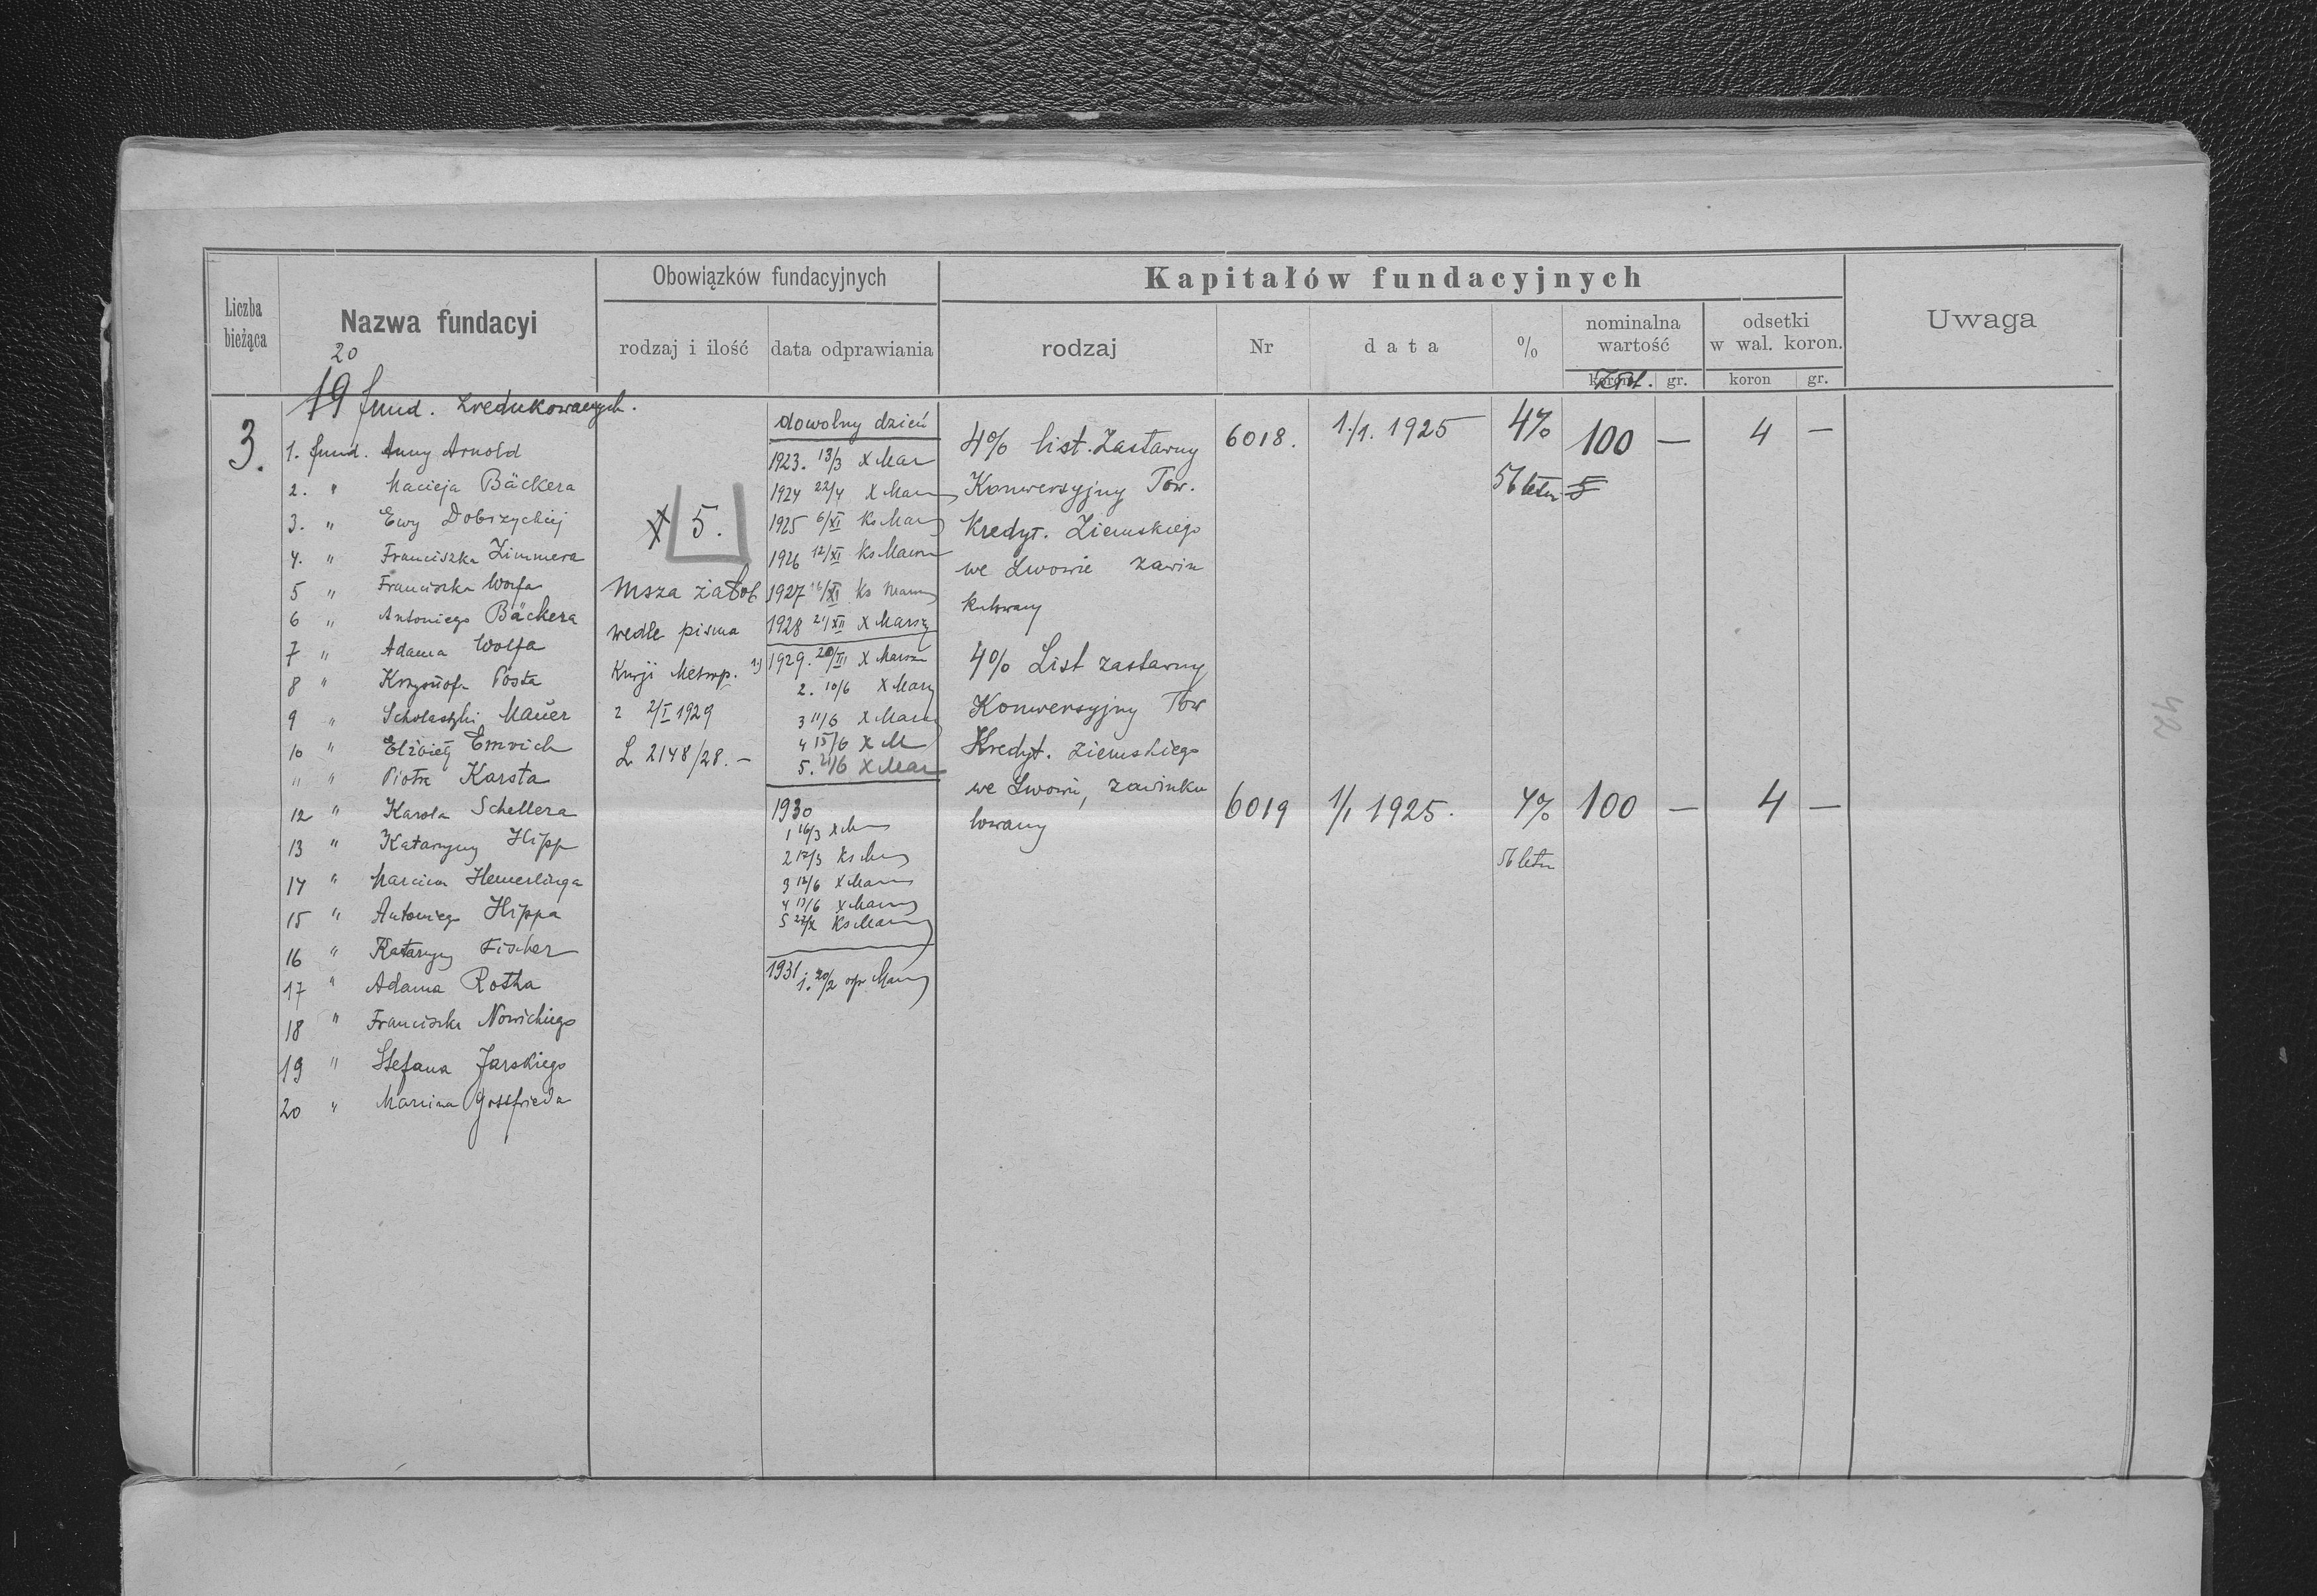 Liczba bieżąca
Nazwa fundacyi
Obowiązków fundacyjnych
rodzaj i ilość
data odprawiania
Kapitałów fundacyjnych
rodzaj
Nr
data
%
nominalna wartość
koron
Złot.
gr.
odsetki w wal. koron.
koron
gr.
Uwaga
20
19 fund. zredukowanych.
3.
1. fund. Anny Arnold
2. " Macieja Bäckera
3. " Ewy Dobrzyckiej
4. " Franciszka Zimmera
5 " Franciszka Wolfa
6 " Antoniego Bäckera
7 " Adama Wolfa
8 " Krzysztofa Posta
9 " Scholastyki Mauer
10 " Elżbiety Emrich
11 " Piotra Karsta
12 " Karola Schellera
13 " Katarzyny Hipp
14 " Marcina Hemerlinga
15 " Antoniego Hippa
16 " Katarzyny Fischer
17 " Adama Rotha
18 " Franciszka Nowickiego
19 " Stefana Jarskiego
20 " Marcina Gottfrieda
5.
Msza żałob
wedle pisma
Kurji Metrop.
z 2/I 1929
L 2148/28. —
dowolny dzień
1923. 13/3 X Mar
1924 22/4 X Mar
1925 6/XI Ks Mar
1926 12/XI Ks Mar
1927 16/XI Ks Mar
1928 21/XII X Marsz
1) 1929. 20/III X Marsz
2. 10/6 X Mar
3 11/6 X Mar
4 15/6 X M
5. 21/6 X Mar
1930
1 16/3 X M
2 17/3 Ks M
3 12/6 X Mar
4 13/6 X Mar
5 27/X Ks Mar
1931. 1. 20/2 Mar
4% list. Zastawny
Konwersyjny Tow.
Kredyt. Ziemskiego
we Lwowie zawin
kulowany
6018.
1./1. 1925
4%
56 letn
100 —
5
4 —
4% List zastawny
Konwersyjny Tow
Kredyt. ziemskiego
we Lwowie, zawinku
lowany
6019
1/1 1925.
4%
56 letn
100 —
4 —
42